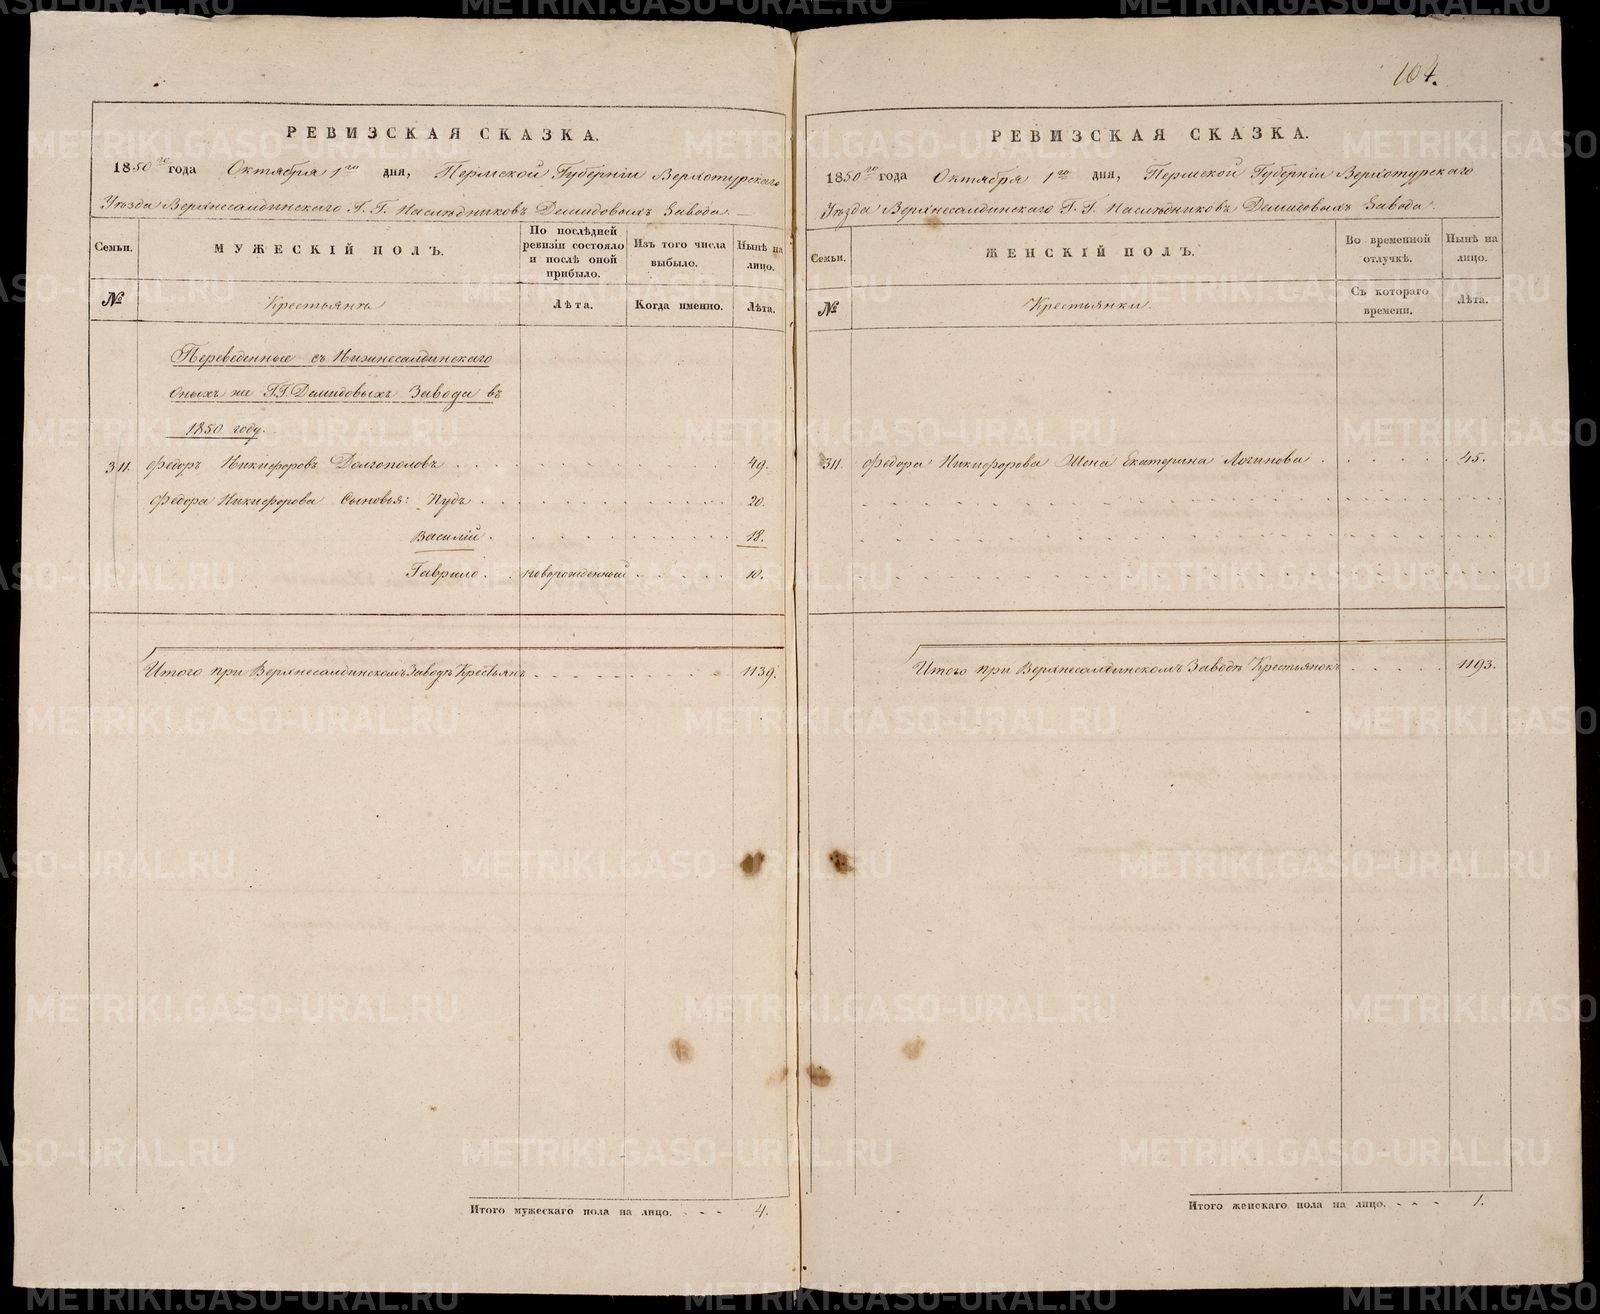 104.
РЕВИЗСКАЯ СКАЗКА.
1850го года Октября 1го дня, Пермской Губерніи Верхотурскаго
Уѣзда Верхнесалдинскаго Г. Г. Наслѣдниковъ Демидовыхъ Завода.
Семьи.
МУЖЕСКІЙ ПОЛЪ.
По послѣдней ревизіи состояло и послѣ оной прибыло.
Изъ того числа выбыло.
Нынѣ на лицо.
№
Крестьянъ
Лѣта.
Когда именно.
Лѣта.
Переведенные съ Нижнесалдинскаго
оныхъ же Г.Г. Демидовыхъ Завода въ
1850 году.
311. Федоръ Никифоровъ Долгополовъ 49.
Федора Никифорова Сыновья: Пудъ 20.
Василій 18.
Гаврило новорожденный 10.
Итого при Верхнесалдинскомъ Заводѣ Крестьянъ 1139.
Итого мужескаго пола на лицо. 4.
РЕВИЗСКАЯ СКАЗКА.
1850го года Октября 1го дня, Пермской Губерніи Верхотурскаго
Уѣзда Верхнесалдинскаго Г. Г. Наслѣдниковъ Демидовыхъ Завода.
Семьи.
ЖЕНСКІЙ ПОЛЪ.
Во временной отлучкѣ.
Нынѣ на лицо.
№
Крестьянки.
Съ котораго времени.
Лѣта.
311. Федора Никифорова Жена Екатерина Логинова 45.
Итого при Верхнесалдинскомъ Заводѣ Крестьянокъ 1193.
Итого женскаго пола на лицо. 1.
METRIKI.GASO-URAL.RU